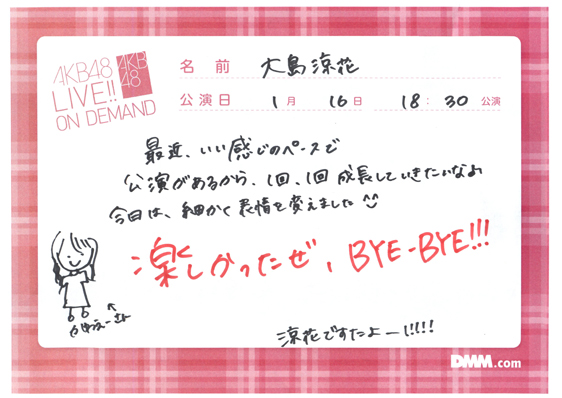 AKB48
LIVE!!
ON DEMAND
AKB
48
名前 大島涼花
公演日 1月 16日 18:30 公演
最近、いい感じのペースで
公演があるから、1回、1回 成長していきたいなぁ
今日は、細かく表情を変えました
楽しかったぜ、BYE-BYE!!!
涼花ですたよー!!!!!
DMM.com